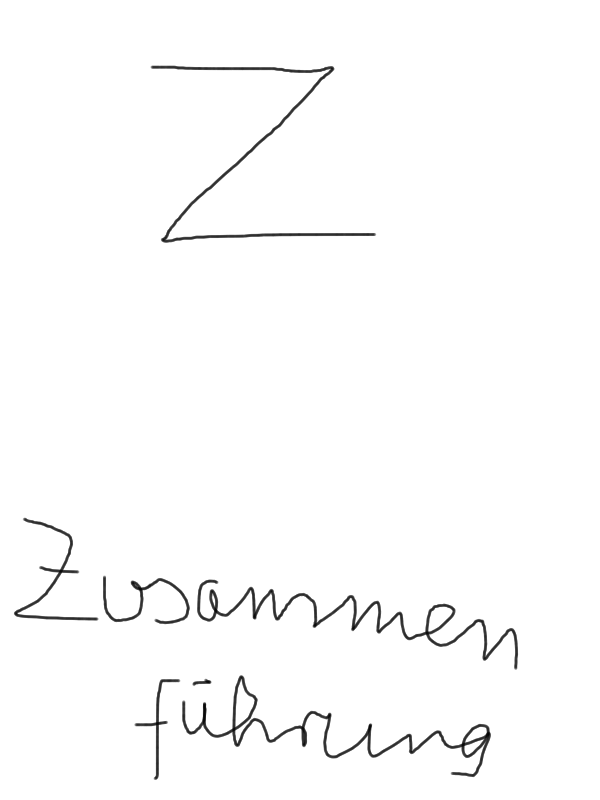 Z
Zusammen
führung